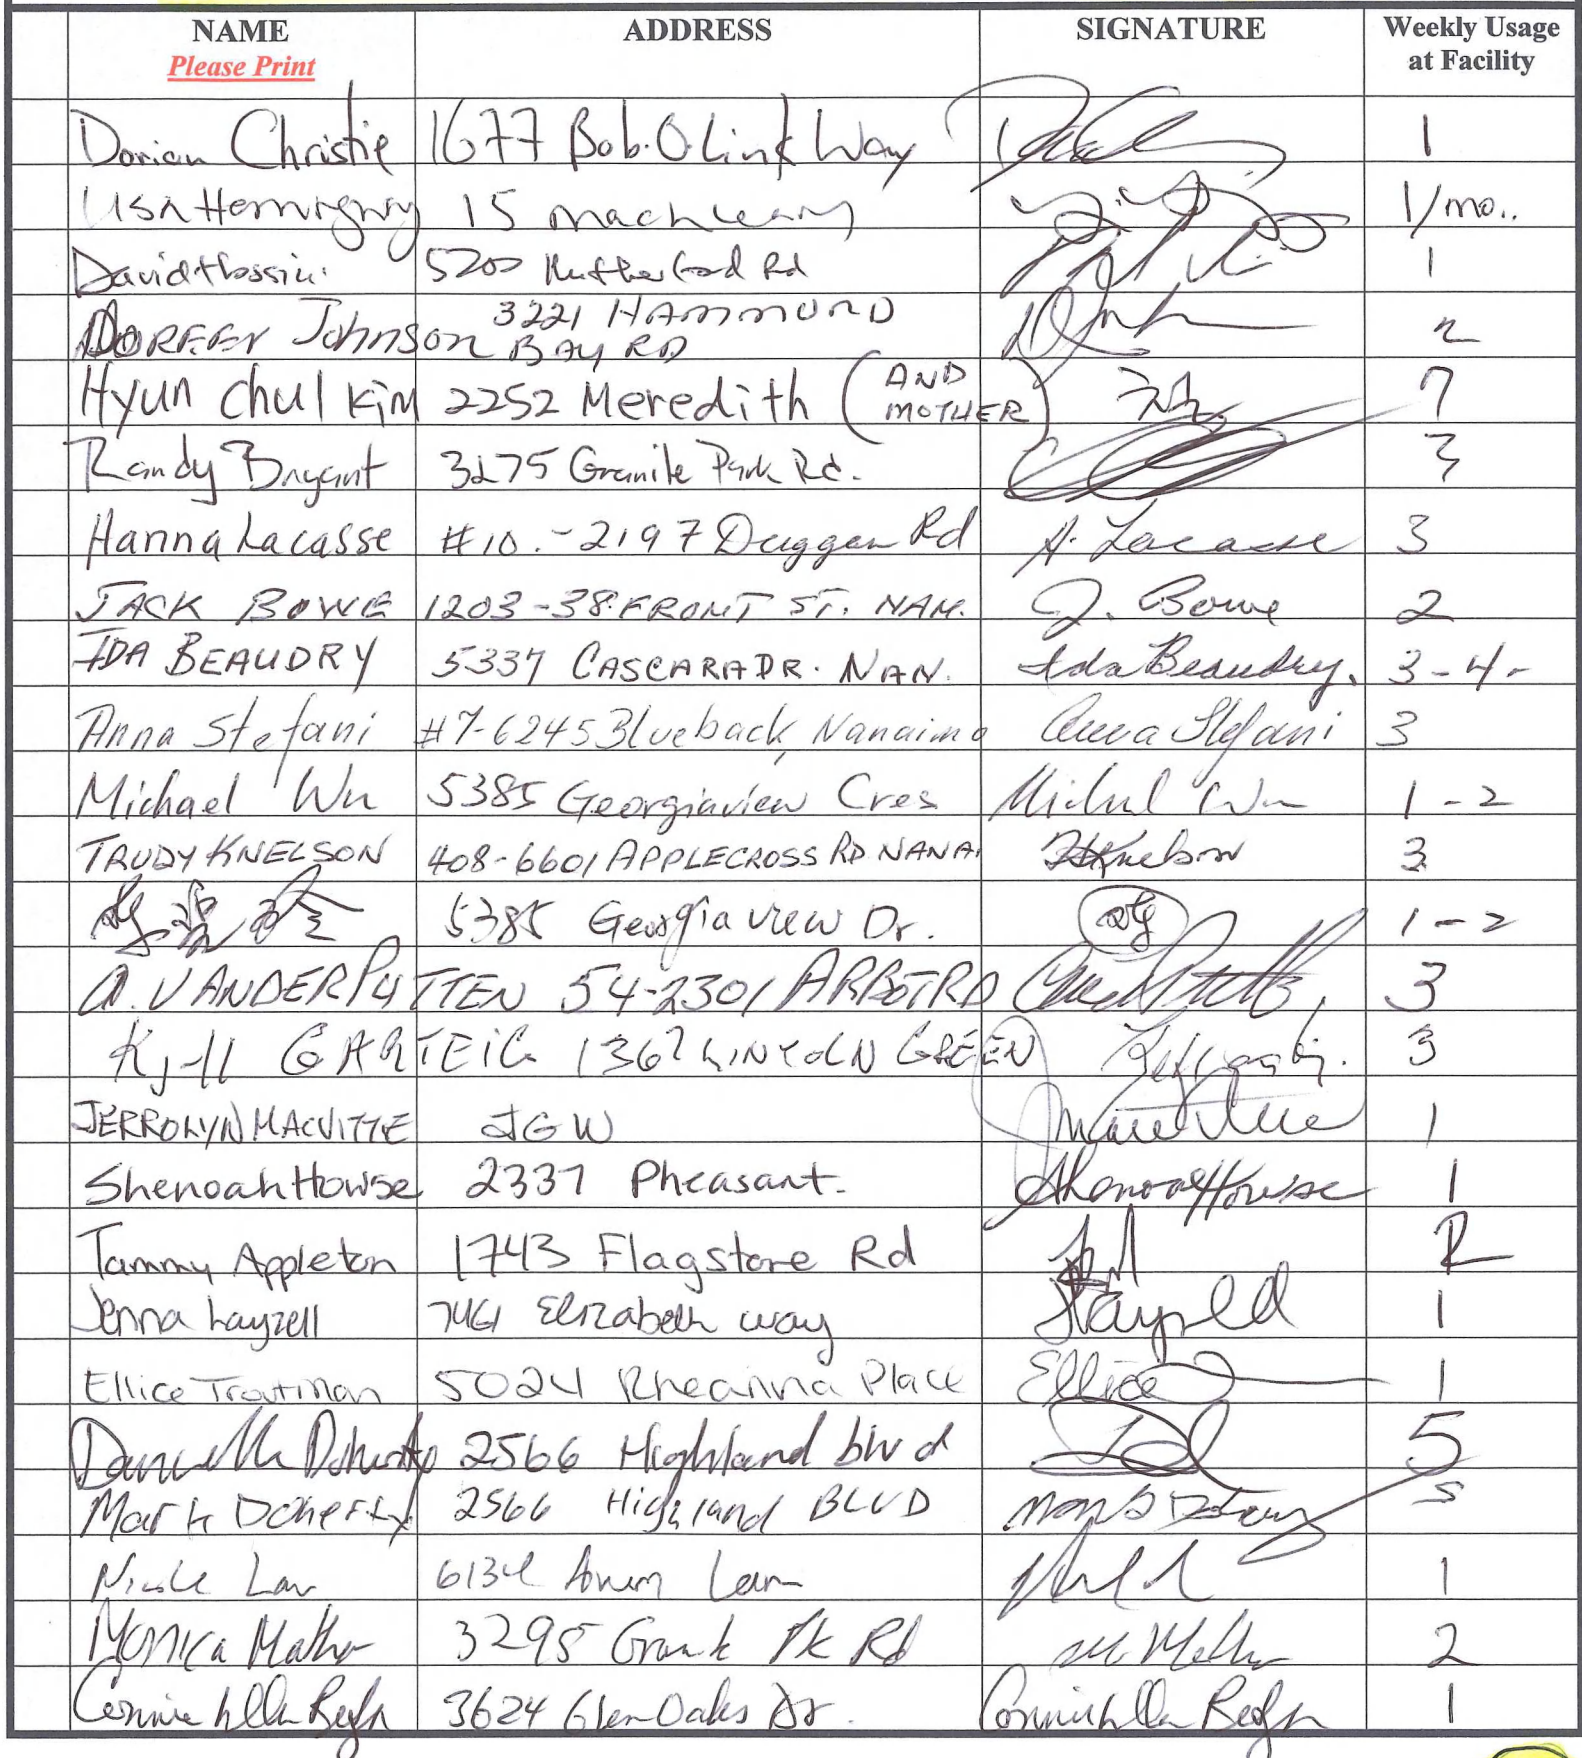 NAME ADDRESS SIGNATURE Weekly Usage
Please Print at Facility
Dorian Christie 1677 Bob.O.Link Way 1
Lisa Hemingway 15 machleary 1/mo..
David Hossini 5200 Rutherford Rd 1
DOREEN Johnson 3221 HAMMOND 2
BAY RD
Hyun chul Kim 2252 Meredith (AND MOTHER) 7
Randy Bryant 3275 Granite Park Rd. 3
Hanna Lacasse #10.-2197 Duggan Rd A. Lacasse 3
JACK BOWE 1203-38 FRONT ST. NAN. J. Bowe 2
IDA BEAUDRY 5337 CASCARA DR. NAN. Ida Beaudry. 3-4-
Anna Stefani #7-6245 Blueback, Nanaimo Anna Stefani 3
Michael Wu 5385 Georgiaview Cres Michael Wu 1-2
TRUDY KNELSON 408-6601 APPLECROSS RD NANAI Knelson 3
5385 Georgia view Dr. 1-2
A. VANDERPUTTEN 54-2301 ARBOT RD 3
Kjell GARTEIG 1367 LINYOLN GREEN 3
JERROLYN MACVITTIE JGW 1
Shenoah Howse 2337 Pheasant. Shenoah Howse 1
Tammy Appleton 1743 Flagstone Rd 2
Jenna Layzell 7461 Elizabeth way 1
Ellice Troutman 5024 Rheanna Place Ellice 1
Danielle Doherty 2566 Highland blvd 5
Mark Doherty 2566 Highland BLVD 5
Nicole 6134 1
Monica Mather 3295 Granite Pk Rd M Mather 2
Connie 3624 Glen Oaks Dr. Connie 1